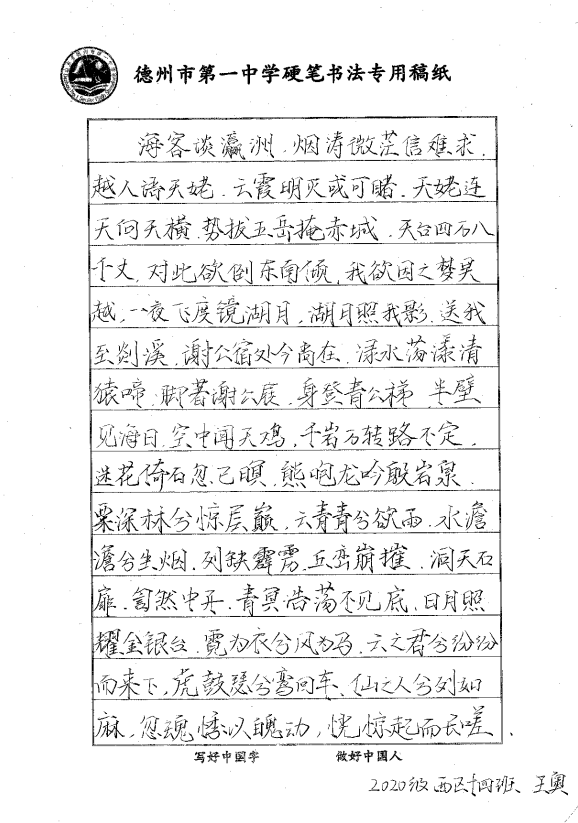 德州市第一中学硬笔书法专用稿纸
海客谈瀛洲，烟涛微茫信难求，
越人语天姥，云霞明灭或可睹，天姥连
天向天横，势拔五岳掩赤城，天台四万八
千丈，对此欲倒东南倾，我欲因之梦吴
越，一夜飞度镜湖月，湖月照我影，送我
至剡溪，谢公宿处今尚在，渌水荡漾清
猿啼，脚著谢公屐，身登青公梯，半壁
见海日，空中闻天鸡，千岩万转路不定，
迷花倚石忽已暝，熊咆龙吟殷岩泉，
栗深林兮惊层巅，云青青兮欲雨，水澹
澹兮生烟，列缺霹雳，丘峦崩摧，洞天石
扉，訇然中开，青冥浩荡不见底，日月照
耀金银台，霓为衣兮风为马，云之君兮纷纷
而来下，虎鼓瑟兮鸾回车，仙之人兮列如
麻，忽魂悸以魄动，恍惊起而长嗟，
写好中国字 做好中国人
2020级西区十四班、王奥